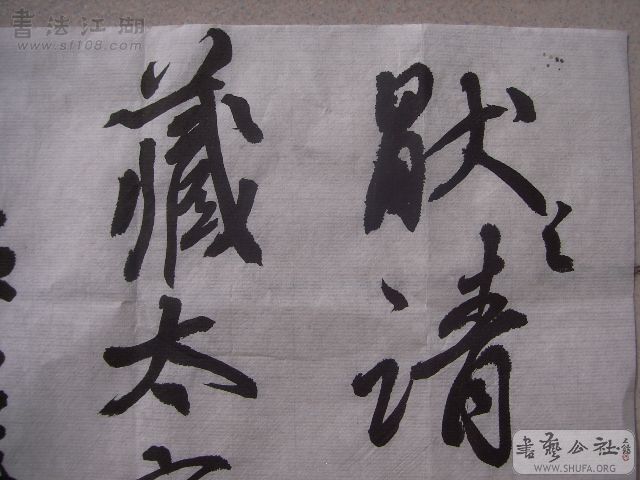 書法江湖
www.sf108.com
猒之請
藏太
書藝公社
WWW.SHUFA.ORG